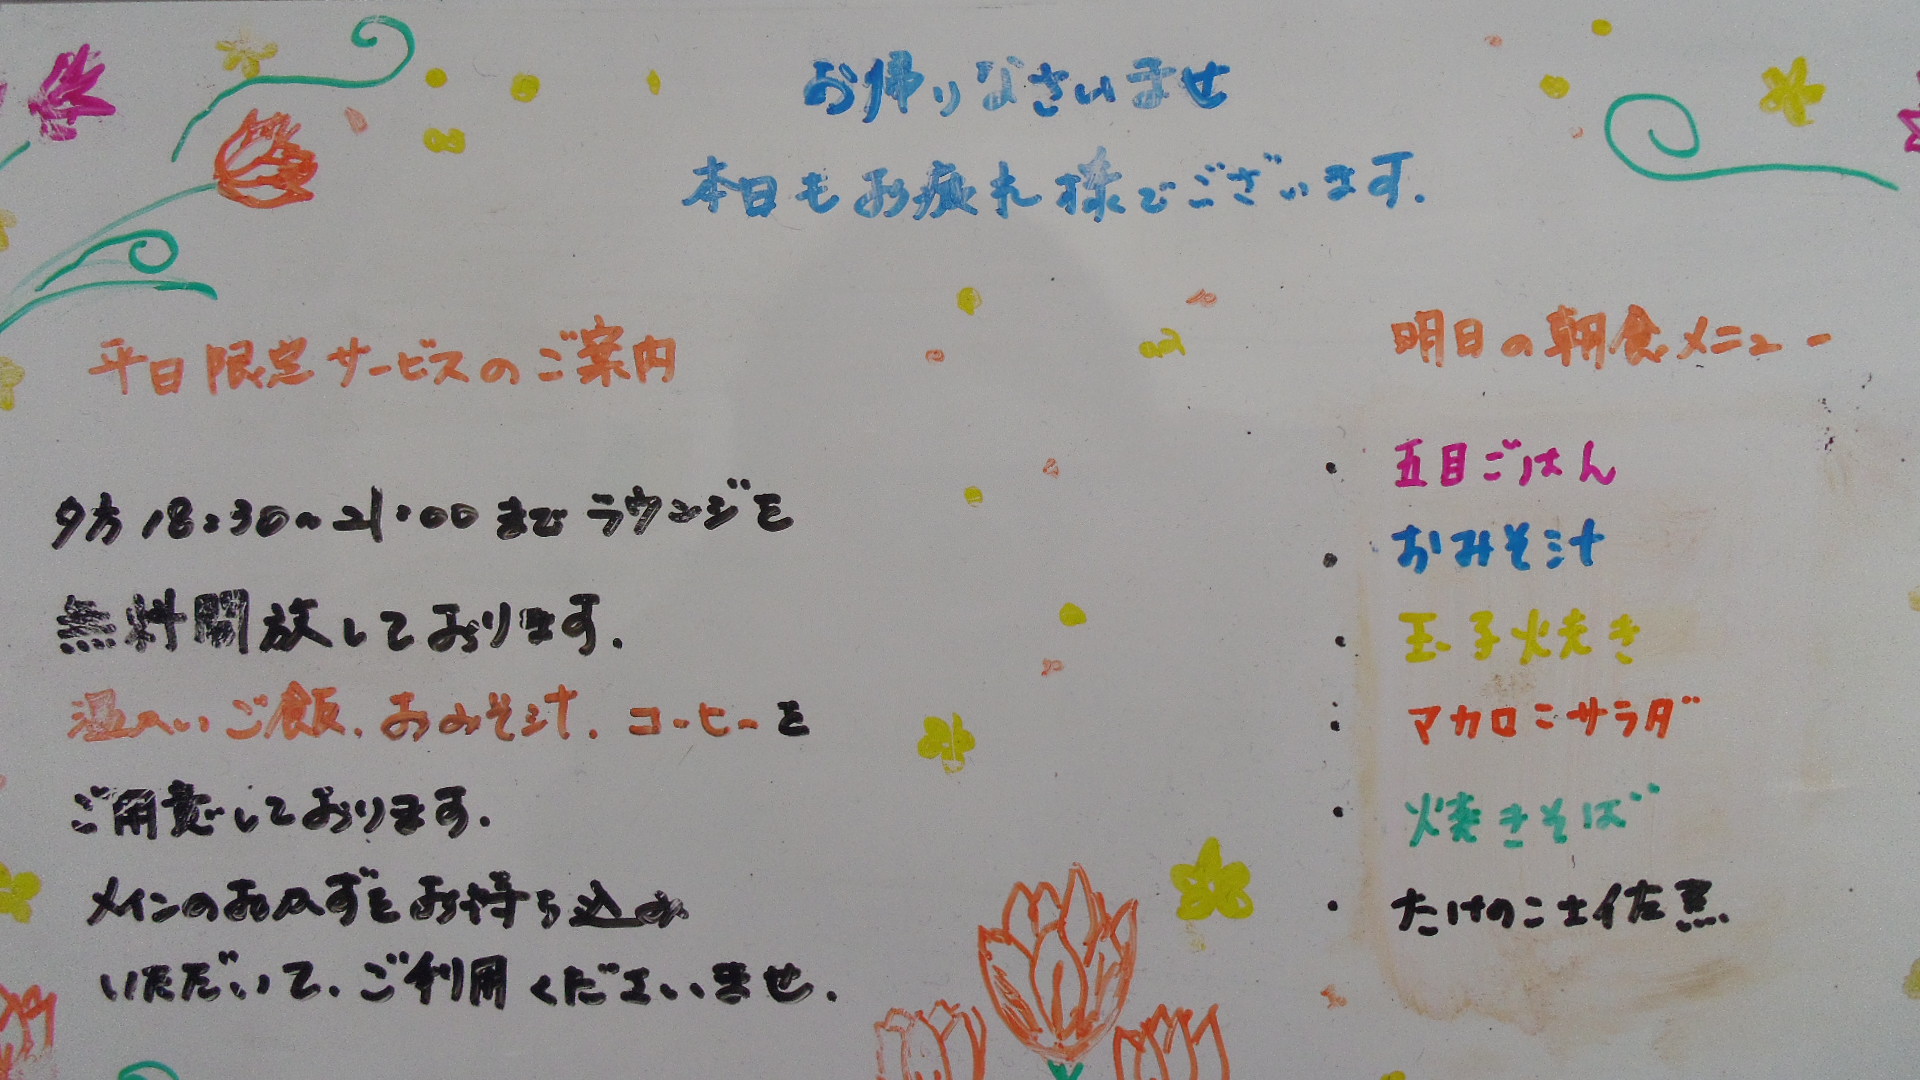 お帰りなさいませ
本日もお疲れ様でございます.
平日限定サービスのご案内
夕方18:30~21:00までラウンジを
無料開放しております.
温かいご飯.おみそ汁.コーヒーを
ご用意しております.
メインのおかずをお持ち込み
いただいて.ご利用くださいませ.
明日の朝食メニュー
・五目ごはん
・おみそ汁
・玉子焼き
・マカロニサラダ
・焼きそば
・たけのこ土佐煮